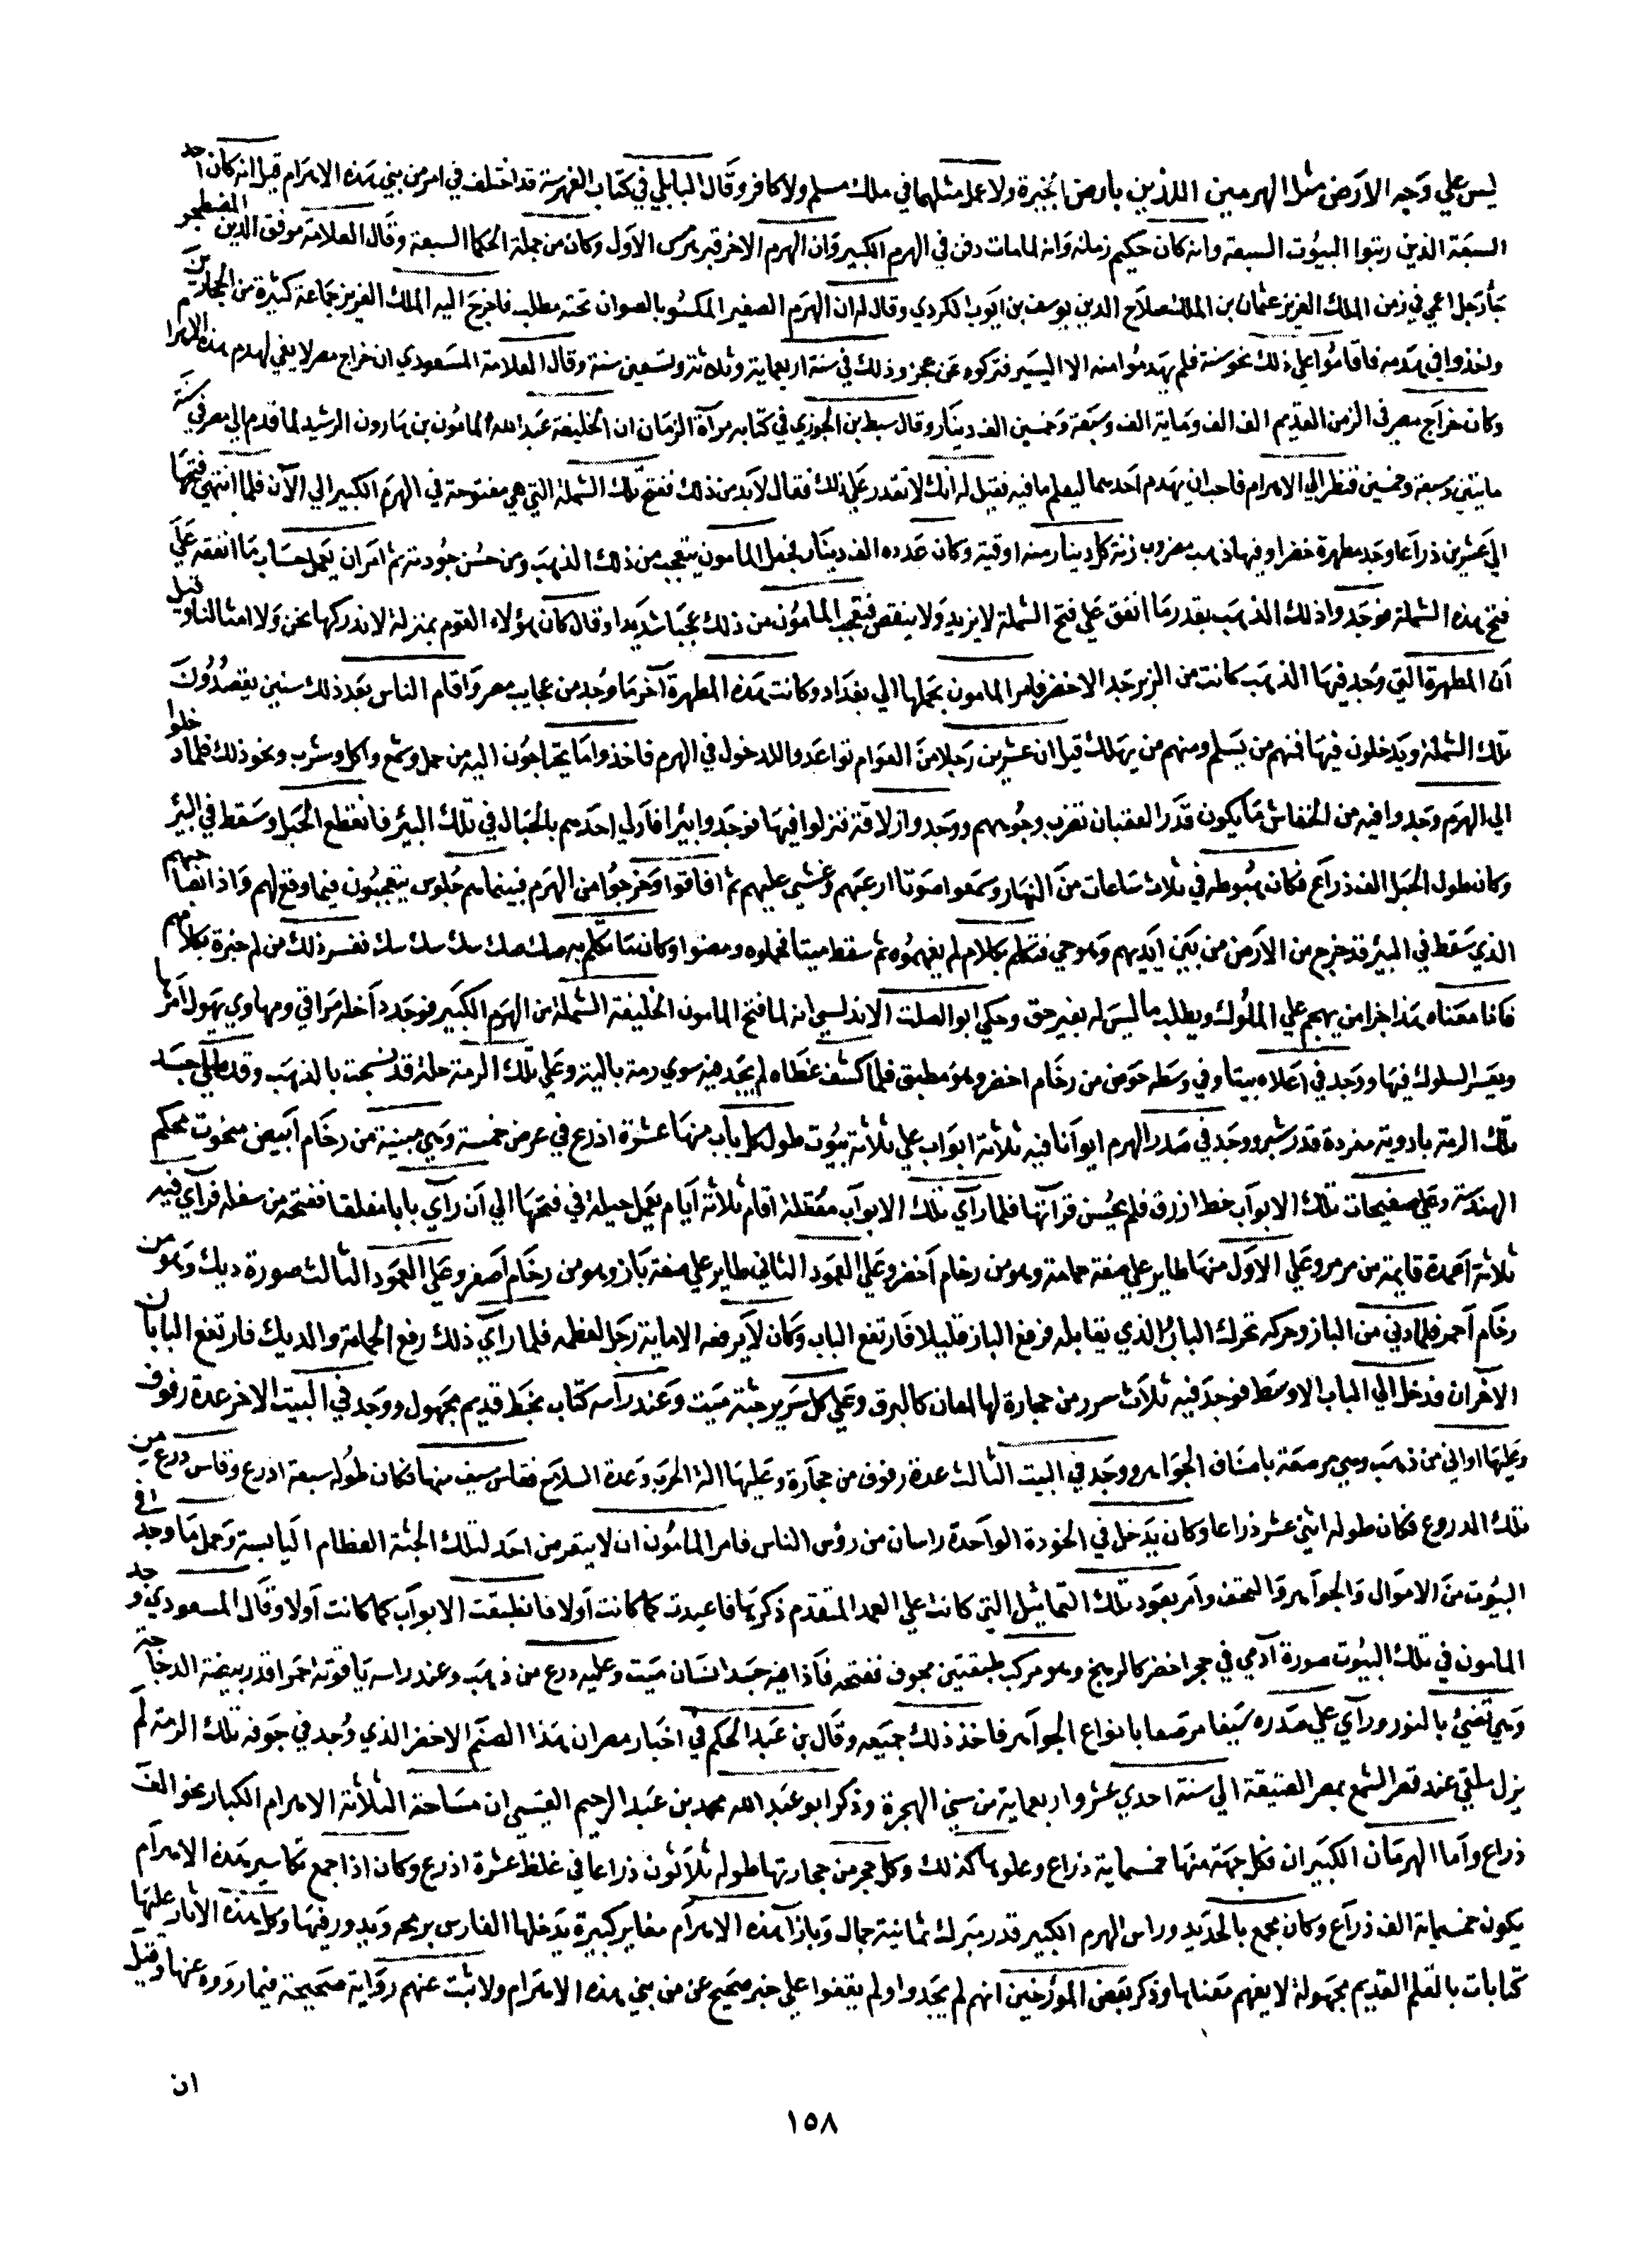 ليس علي وجه الارض مثل الهرمين اللذين بارض الجيزة ولا عمل مثلهما في ملك مسلم ولا كافر وقال البابلي في كتاب الفهرسة قد اختلف في امر من بني هذه الاهرام قيل انه كان احد
السبعة الذين رتبوا البيوت السبعة وانه كان حكيم زمانه وانه لما مات دفن في الهرم الكبير وان الهرم الاخر قبر هرمس الاول وكان من جملة الحكما السبعة وقال العلامة موفق الدين
جا رجل اعمي في زمن الملك العزيز عثمان بن الملك صلاح الدين يوسف بن ايوب الكردي وقال له ان الهرم الصغير المكسو بالصوان تحته مطلب فاخرج اليه الملك العزيز جماعة كثيرة من الحجارين
واخذوا في هدمه فاقاموا علي ذلك نحو سنة فلم يهدموا منه الا اليسير فتركوه عن عجز وذلك في سنة اربعماية وثلاثة وتسعين سنة وقال العلامة المسعودي ان خراج مصر لا يفي لهدم هذه الاهرام
وكان خراج مصر في الزمن القديم الف الف وماية الف وسبعة وخمسين الف دينار وقال سبط بن الجوزي في كتابه مرآة الزمان ان الخليفة عبد الله المامون بن هارون الرشيد لما قدم الي مصر في سنة
مايتين وسبعة وخمسين فنظر الي الاهرام فاحب ان يهدم احدهما ليعلم ما فيه فقيل له انك لا تقدر علي ذلك فقال لا بد من ذلك ففتح تلك الثلمة التي هي مفتوحة في الهرم الكبير الي الآن فلما انتهي فتحها
الي عشرين ذراعا وجد مطهرة خضرا وفيها ذهب مضروب زنة كل دينار منه اوقية وكان عدده الف دينار فجعل المامون يتعجب من ذلك الذهب ومن حسن جودته ثم امر ان يعمل حساب ما انفقه علي
فتح هذه الثلمة فوجدوا ذلك الذهب بقدر ما انفق علي فتح الثلمة لا يزيد ولا ينقص فتعجب المامون من ذلك عجبا شديدا وقال كان هؤلاء القوم بمنزلة لا ندركها نحن ولا امثالنا وقيل
ان المطهرة التي وجد فيها الذهب كانت من الزبرجد الاخضر فامر المامون بحملها الي بغداد وكانت هذه المطهرة آخر ما وجد من عجايب مصر واقام الناس بعد ذلك سنين يقصدون
تلك الثلمة ويدخلون فيها فمنهم من يسلم ومنهم من يهلك قيل ان عشرين رجلا من العوام تواعدوا للدخول في الهرم فاخذوا ما يحتاجون اليه من حبل وشمع واكل وشرب ونحو ذلك فلما دخلوا
الي الهرم وجدوا فيه من الخفاش ما يكون قدر العقبان تضرب وجوههم ووجدوا زلاقة فنزلوا فيها فوجدوا بئرا فادلي احدهم بالحبال في تلك البئر فانقطع الحبل وسقط في البئر
وكان طول الحبل الف ذراع فكان هبوطه في ثلاث ساعات من النهار وسمعوا صوتا ارعبهم وغشي عليهم ثم افاقوا وخرجوا من الهرم فبينما هم جلوس يتعجبون فيما وقع لهم واذا بصاحبهم
الذي سقط في البئر قد خرج من الارض من بين ايديهم وهو حي فتكلم بكلام لم يفهموه ثم سقط ميتا فحملوه ومضوا وكان ما تكلم به صك صك سك سك سك ففسر ذلك من له خبرة بكلامهم
فكانا معناه هذا جزا من يهجم علي الملوك ويطلب ما ليس له بغير حق وحكي ابو الصلت الاندلسي انه لما فتح المامون الخليفة الثلمة من الهرم الكبير فوجد داخله مراقي ومهاوي يهول امرها
ويعسر السلوك فيها ووجد في اعلاه بيتا وفي وسطه حوض من رخام اخضر وهو مطبق فلما كشف غطاه لم يجد فيه سوي رمة بالية وعلي تلك الرمة حلة قد نسجت بالذهب وقد طلي جسد
تلك الرمة بادوية مفردة قدر شبر ووجد في صدر الهرم ايوانا فيه ثلاثة ابواب علي ثلاثة بيوت طول كل باب منها عشرة اذرع في عرض خمسة وهي مبنية من رخام ابيض منحوت محكم
الهندسة وعلي صفيحات تلك الابواب خط ازرق فلم يحسن قرآتها فلما رآي تلك الابواب مقفلة اقام ثلاثة ايام يعمل حيلة في فتحها الي ان رآي بابا مغلقا ففتحه من سفله فرآي فيه
ثلاثة اعمدة قايمة من مرمر وعلي الاول منها طاير علي صفة حمامة وهو من رخام اخضر وعلي العمود الثاني طاير علي صفة باز وهو من رخام اصفر وعلي العمود الثالث صورة ديك وهو من
رخام احمر فلما دني من الباز وحركه تحرك الباب الذي يقابله فرفع الباز قليلا فارتفع الباب وكان لا يرفعه الا ماية رجل لعظمه فلما رآي ذلك رفع الحمامة والديك فارتفع البابان
الاخران فدخل الي الباب الاوسط فوجد فيه ثلاث سرر من حجارة لها لمعان كالبرق وعلي كل سرير جثة ميت وعند راسه كتاب بخط قديم مجهول ووجد في البيت الاخر عدة رفوف
وعليها اواني من ذهب وهي مرصعة باصناف الجواهر ووجد في البيت الثالث عدة رفوف من حجارة وعليها الة الحرب وعدة السلاح فقاس سيف منها فكان طوله سبعة اذرع وقاس درع من
تلك الدروع فكان طوله اثني عشر ذراعا وكان يدخل في الخودة الواحدة راسان من رؤس الناس فامر المامون ان لا يتعرض احد لتلك الجثة العظام اليابسة وحمل ما وجد في
البيوت من الاموال والجواهر والتحف وامر بعود تلك التماثيل التي كانت علي العمد المتقدم ذكرها فاعيدت كما كانت اولا فانطبقت الابواب كما كانت اولا وقال المسعودي وجد
المامون في تلك البيوت صورة آدمي في حجر اخضر كالرهج وهو مركب طبقتين مجوف ففتحه فاذا فيه جسد انسان ميت وعليه درع من ذهب وعند راسه ياقوتة احمرا قدر بيضة الدجاجة
وهي تضئ بالنور ورآي علي صدره سيفا مرصعا بانواع الجواهر فاخذ ذلك جميعه وقال بن عبد الحكم في اخبار مصر ان هذا الصنم الاخضر الذي وجد في جوفه تلك الرمة لم
يزل ملقي عند قصر الشمع بمصر العتيقة الي سنة احدي عشر واربعماية من سني الهجرة وذكر ابو عبد الله محمد بن عبد الرحيم القيسي ان مساحة الثلاثة الاهرام الكبار نحو الف
ذراع واما الهرمان الكبيران فكل جهة منها خمسماية ذراع وعلوها كذلك وكل حجر من حجارتها طوله ثلاثون ذراعا في غلظ عشرة اذرع وكان اذا جمع تكاسير هذه الاهرام
يكون خمسماية الف ذراع وكان مجمع بالحديد وراس الهرم الكبير قدر مبرك ثمانية جمال وبازا هذه الاهرام مغاير كبيرة يدخلها الفارس برمحه ويدور فيها وكل هذه الآثار عليها
كتابات بالقلم القديم مجهولة لا يفهم معناها وذكر بعض المؤرخين انهم لم يجدوا ولم يقفوا علي خبر صحيح عن من بني هذه الاهرام ولا ثبت عنهم رواية صحيحة فيما رووه عنها وقيل
ان
١٥٨